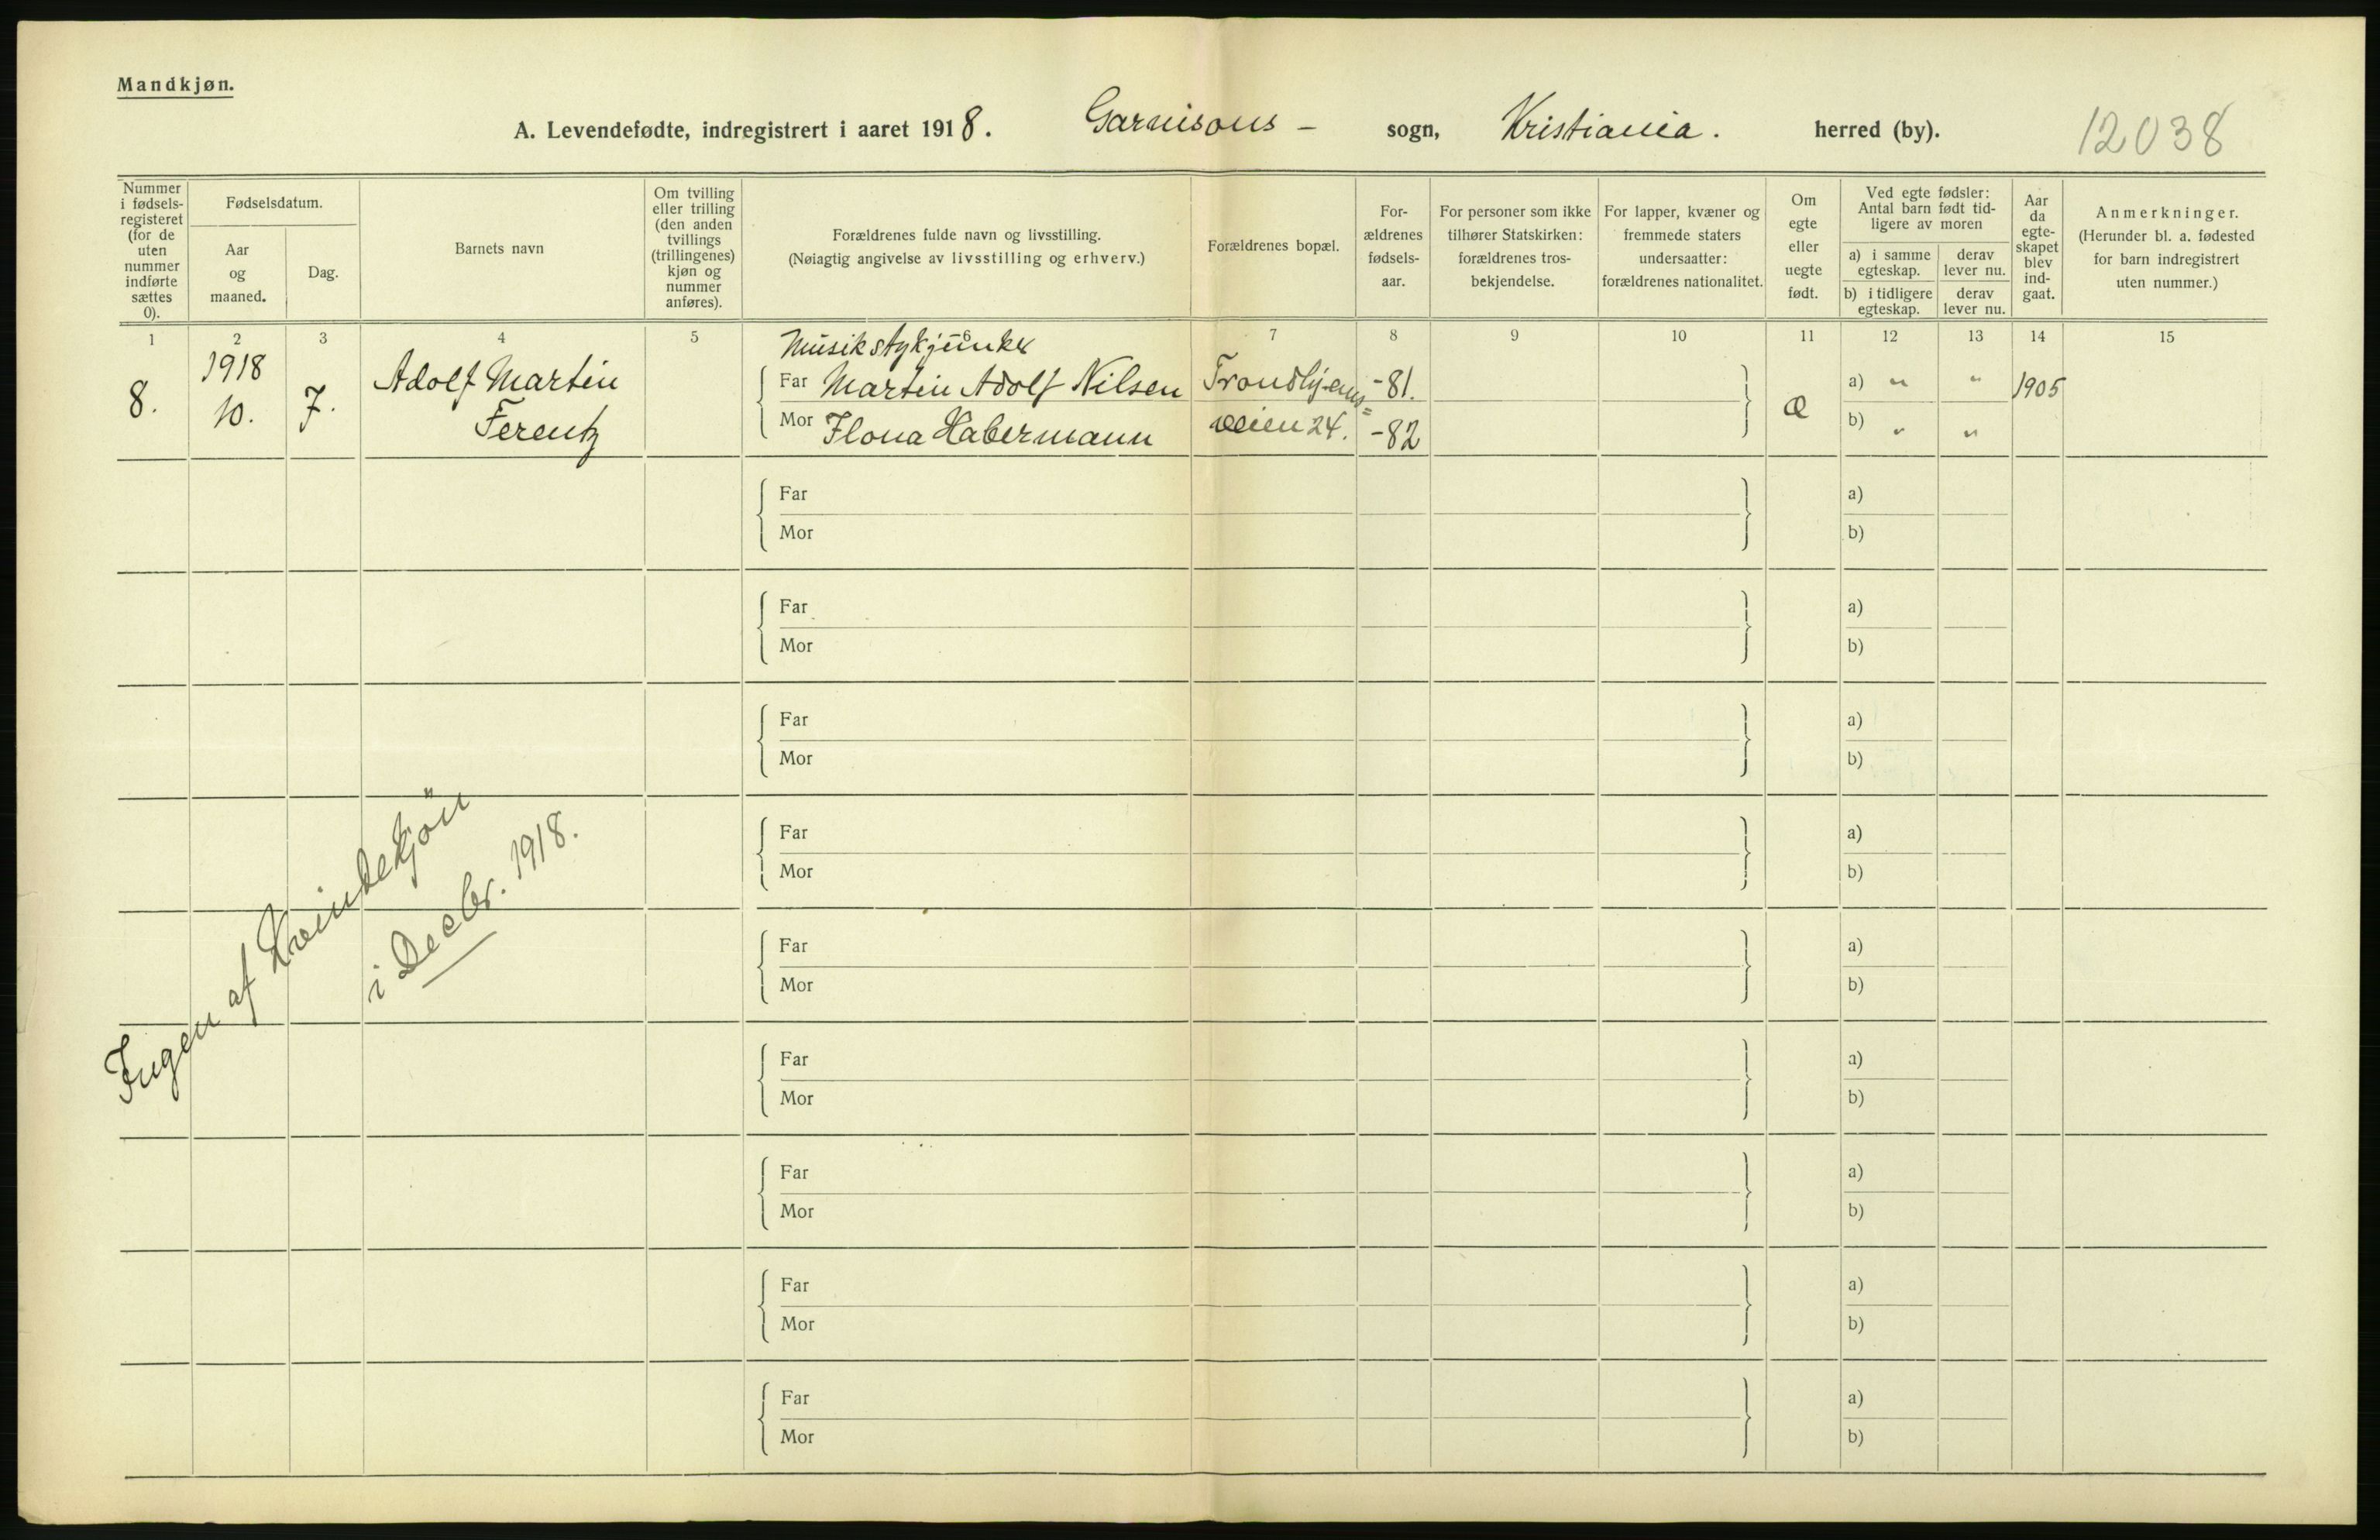 Mandkjøn.
A. Levendefødte, indregistrert i aaret 1918. Garnisons - sogn, Kristiania. herred (by). 12038
Nummer i fødsels-registeret (for de uten nummer indførte sættes 0).
Fødselsdatum.
Aar og maaned.
Dag.
Barnets navn
Om tvilling eller trilling (den anden tvillings (trillingenes) kjøn og nummer anføres).
Forældrenes fulde navn og livsstilling.
(Nøiagtig angivelse av livsstilling og erhverv.)
Forældrenes bopæl.
For-ældrenes fødsels-aar.
For personer som ikke tilhører Statskirken: forældrenes tros-bekjendelse.
For lapper, kvæner og fremmede staters undersaatter: forældrenes nationalitet.
Om egte eller uegte født.
Ved egte fødsler: Antal barn født tid-ligere av moren
a) i samme egteskap.
derav lever nu.
b) i tidligere egteskap.
derav lever nu.
Aar da egte-skapet blev ind-gaat.
Anmerkninger.
(Herunder bl. a. fødested for barn indregistrert uten nummer.)
1 2 3 4 5 6 7 8 9 10 11 12 13 14 15
Musikstykjunker
8. 1918 10. 7. Adolf Martin Ferentz
Far Martin Adolf Nilsen Trondhjems= -81. Æ a) " " 1905
Mor Ilona Habermann veien 24. -82 b) " "
Far a)
Mor b)
Far a)
Mor b)
Far a)
Mor b)
Far a)
Mor b)
Far a)
Mor b)
Far a)
Mor b)
Far a)
Mor b)
Far a)
Mor b)
Far a)
Mor b)
Ingen af Kvindekjön
i Decbr. 1918.